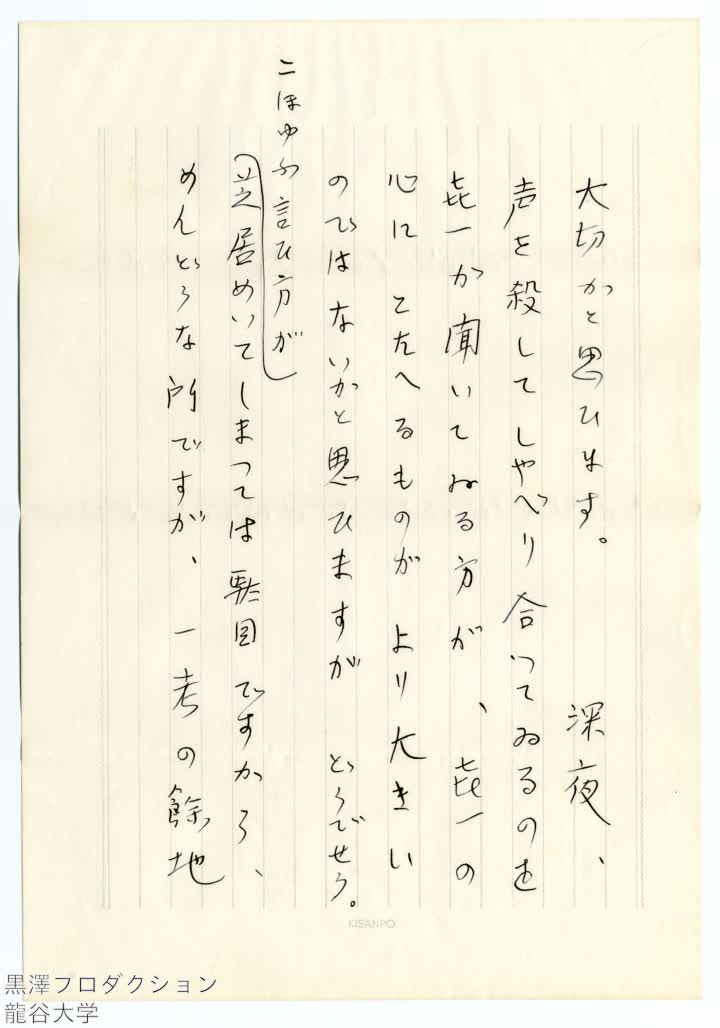 大切かと思ひます。 深夜、
声を殺してしやべり合つてゐるのを
㐂一が聞いてゐる方が、㐂一の
心にこたへるものがより大きい
のではないかと思ひますが どうでせう。
言ひ方が
芝居めいてしまつては駄目ですから、
めんどうな所ですが、一考の餘地
KISANPO
黒澤プロダクション
龍谷大学